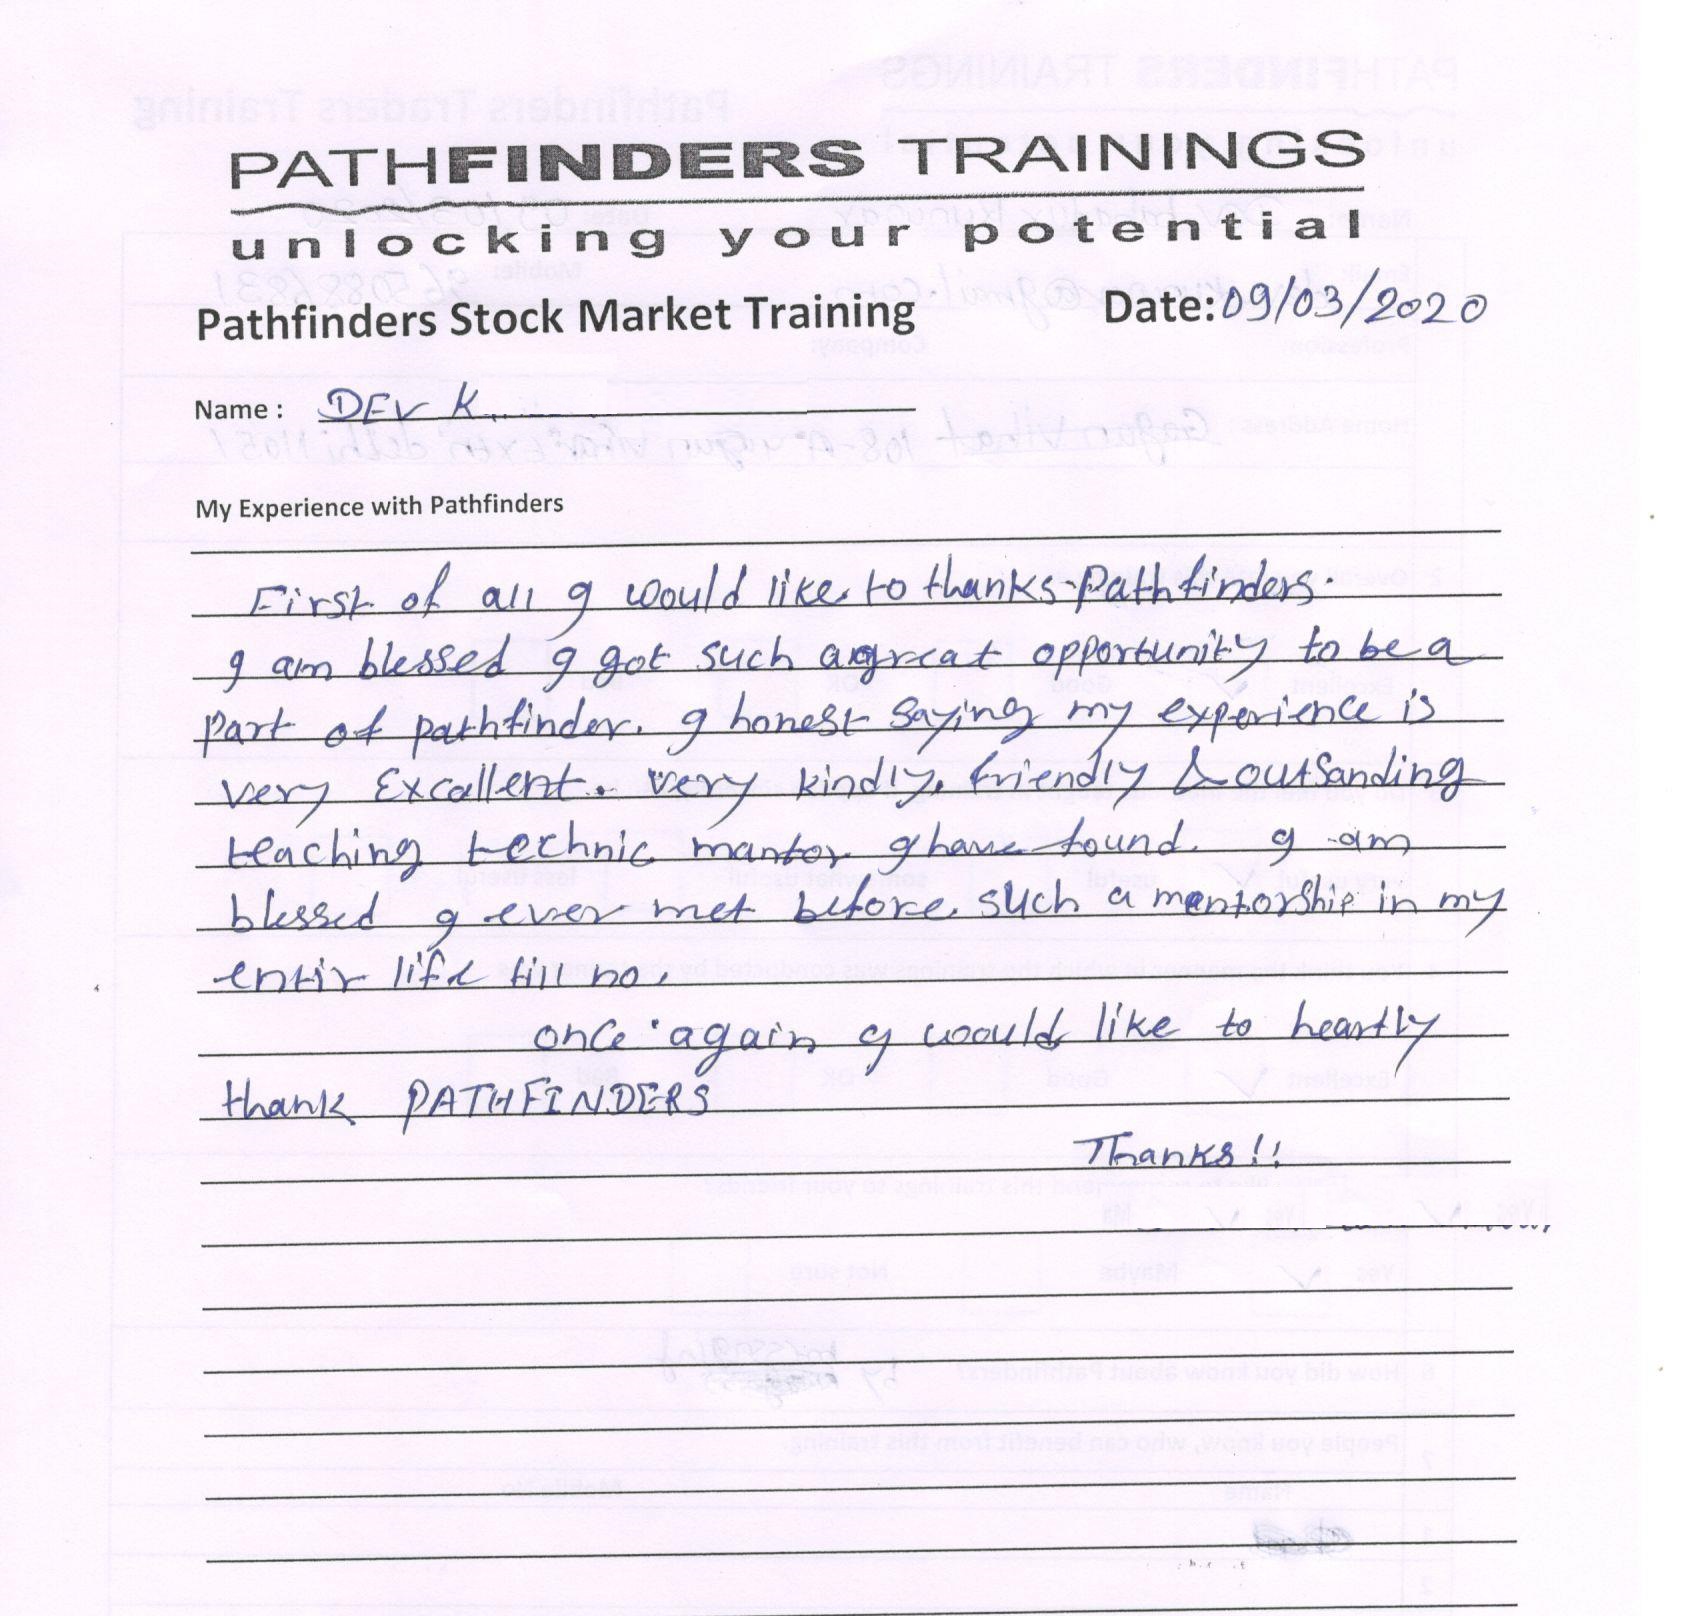 PATHFINDERS TRAININGS
unlocking your potential
Pathfinders Stock Market Training Date: 09/03/2020
Name : DEV K.
My Experience with Pathfinders
First of all I would like to thanks Pathfinders.
I am blessed I got such a great opportunity to be a
part of pathfinder. I honest saying my experience is
very Excallent. very kindly, friendly & outsanding
teaching technic mantor I have found. I am
blessed I ever met before such a mentorship in my
entir life till no.
once again I woould like to heartly
thank PATHFINDERS
Thanks!!